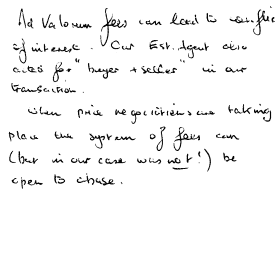 Ad Valorem fees can lead to conflic
of interest. Our Est. Agent also
acted for "buyer + seller" in our
transaction.
When price negociations are taking
place the system of fees can
(but in our case was not!) be
open to abuse.